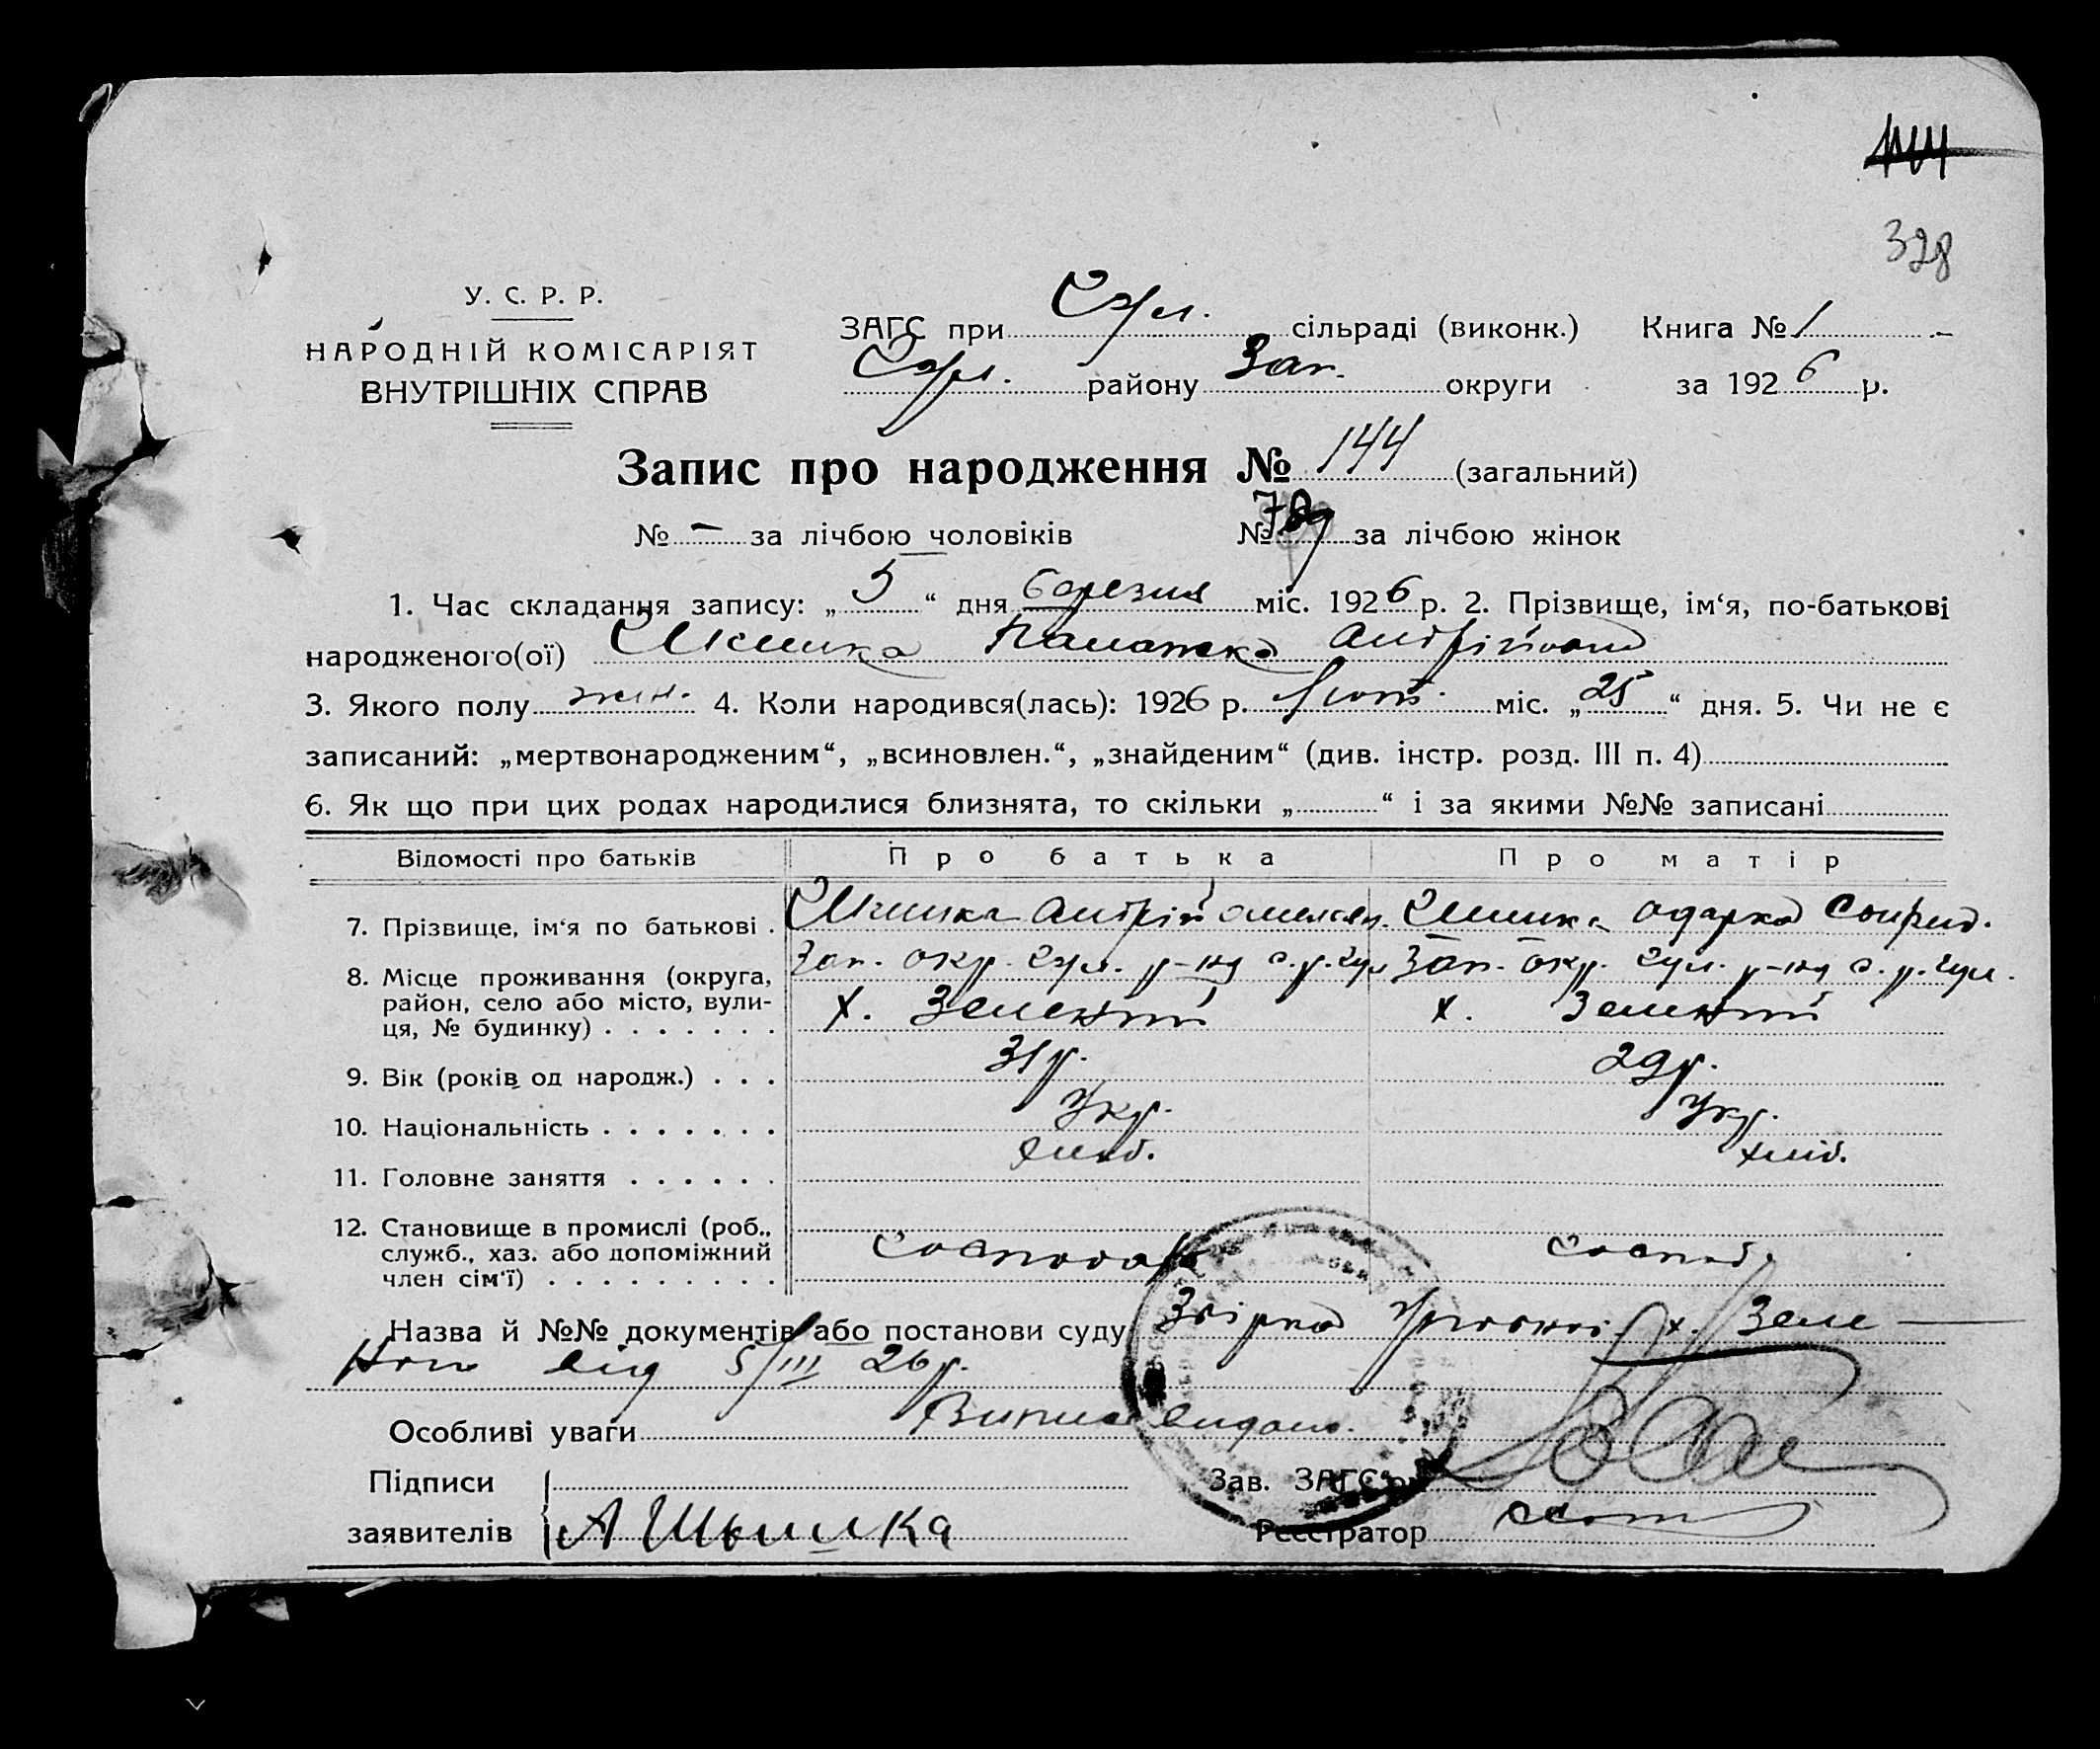 328
У. С. Р. Р.
НАРОДНІЙ КОМІСАРІЯТ
ВНУТРІШНІХ СПРАВ
ЗАГС при Гул. сільраді (виконк.) Книга № 1
Гул. району Зап. округи за 1926 р.
Запис про народження № 144 (загальний)
№ – за лічбою чоловіків № за лічбою жінок
1. Час складання запису: „5“ дня березня міс. 1926 р. 2. Прізвище, ім‘я, по-батькові
народженого(ої) Шишка Палажка Андріївна
3. Якого полу жін. 4. Коли народився(лась): 1926 р. Лют. міс. „25“ дня. 5. Чи не є
записаний: „мертвонародженим“, „всиновлен.“, „знайденим“ (див. інстр. розд. III п. 4)
6. Як що при цих родах народилися близнята, то скільки „ “ і за якими №№ записані
Відомості про батьків Про батька Про матір
7. Прізвище, ім‘я по батькові . Шишка Андрій Омелян. Шишка Одарка Спирид.
8. Місце проживання (округа, Зап. окр. Гул. р-ну с. р. Гул Зап. окр. Гул. р-ну с. р. Гул.
район, село або місто, вули-
ця, № будинку) . . . . . . . х. Зелений х. Зелений
9. Вік (років од народж.) . . . 31 р. 29 р.
10. Національність . . . . . . . Укр. Укр.
11. Головне заняття . . . . . . хліб. хліб.
12. Становище в промислі (роб.,
служб., хаз. або допоміжний Господарь Господ.
член сім‘ї) . . . . . . . . .
Назва й №№ документів або постанови суду х. Зеле-
від 5/III 26 р.
Особливі уваги Випис видано.
Підписи Зав. ЗАГС‘ом
заявителів А Шышка Реєстратор